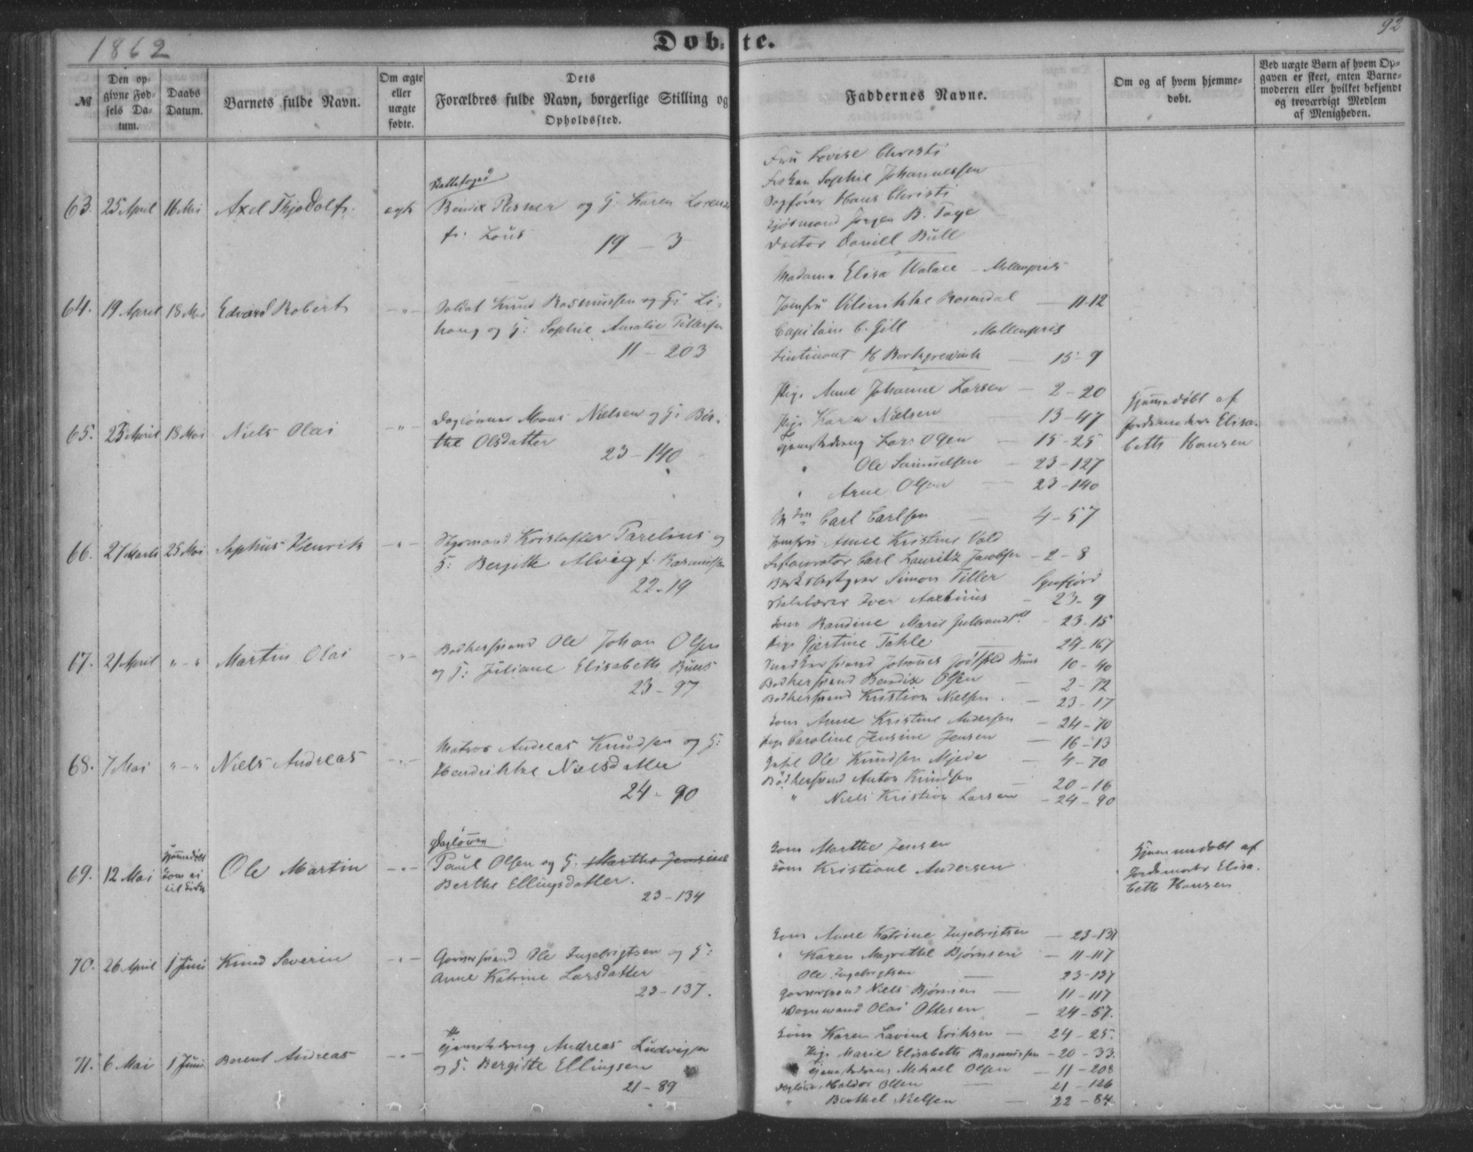 1862
Døbte.
92
№
Den opgivne Fødsels Datum.
Daabs Datum.
Barnets fulde Navn.
Om ægte eller uægte fødte.
Dets Forældres fulde Navn, borgerlige Stilling og Opholdssted.
Faddernes Navne.
Om og af hvem hjemmedøbt.
Ved uægte Børn af hvem Opgaven er skeet, enten Barnemoderen eller hvilket bekjendt og troværdigt Medlem af Menigheden.
63. 25 April 16 Mai Axel Thjodolf
egte
Bendix Resner og H. Karen Lorenze
f. Lous 19 - 3
Fru Lovise Christi
Frøken Sophie Johannessen
Hans Christi
Jørgen B. Faye
Doctor Daniel Bull
64. 19 April 18 Mai Edvard Robert
Soldat Knud Rasmussen og H:
og H: Sophie Amalie Pettersen
11 - 203
Madame Elisa Walace - Møllenpriis
Jomfru Rosendal - 11-12
Capitain C. Gill Møllenpriis
Lieutinant 15 - 9
65. 23 April 18 Mai Niels Olai
Dagleiner Mons Nielsen og H: Ber-
the Olsdatter
23 - 140
Pige Anne Johanne Larsen - 2 - 20
Pige Karen Nielsen 13 - 47
Tjenestedreng Lars Olsen - 15 - 25
" Ole Samuelsen - 23 - 127
" Arne Olsen - 23 - 140
Hjemmedøbt af
Jordemoder Elisa-
beth Hansen
66. 27 Marts 25 Mai Asphius Henrik
Styrmand Kristoffer Parelius og
H: Bergitte Alvig f. Rasmussen
22 - 19
Carl Carlsen - 4 - 57
Jomfru Anne Kristine Vold
Carl Lauritz Jacobsen - 2 - 8
Simon Tiller
Iver Aarhuus - 23 - 9
67. 21 April " - " Martin Olai
Bødkersvend Ole Johan Olsen
og H: Juliane Elisabeth Buus
23 - 97
Kone Bandine Marie - 23 - 15
Pige Gjertine Tahle 24 - 167
Johannes Buus 10 - 40
Bødkersvend Bendix Olsen - 2 - 72
Bødkersvend Kristian Nielsen - 23 - 17
68. 7 Mai " - " Niels Andreas
Matros Andreas Knudsen og H:
Hendrikke Nielsdatter
24 - 90
Kone Anne Kristine Andersen - 24 - 70
Pige Caroline Jensine Jensen - 16 - 13
Ole Knudsen Mjeide - 4 - 70
Bødkersvend Anton Knudsen 20 - 16
" Niels Kristian Larsen - 24 - 90
69. 12 Mai Hjemmedøbt Ole Martin
Dagleiner
Paul Olsen og H. Marthe Jensine
Berthe Ellingsdatter.
23 - 134
Kone Marthe Jensen
Kone Kristiane Andersen
Hjemmedøbt af
Jordemoder Elisa-
beth Hansen
70. 26 April 1 Juni Knud Severin
Garversvend Ole Ingebrigtsen og H:
Anne Katrine Larsdatter
23 - 137.
Kone Anne Katrine Ingebrigtsen - 23 - 131
" Karen Magrethe Bjørnsen - 11 - 117
Ole Ingebrigtsen - 23 - 137
Garversvend Niels Bjørnsen - 11 - 117
Vognmand Olai Ottesen - 24 - 57.
71. 6 Mai 1 Juni Berent Andreas
Tjenestedreng Andreas Ludvigsen
og H. Bergitte Ellingsen
21 - 89
Kone Karen Lavine Eriksen - 24 - 25.
Pige Marie Elisabeth Rasmussen - 20 - 33.
Tjenestedreng Mikael Olsen - 11 - 208
Haldor Olsen - 21 - 126
" Berthel Nielsen - 22 - 84